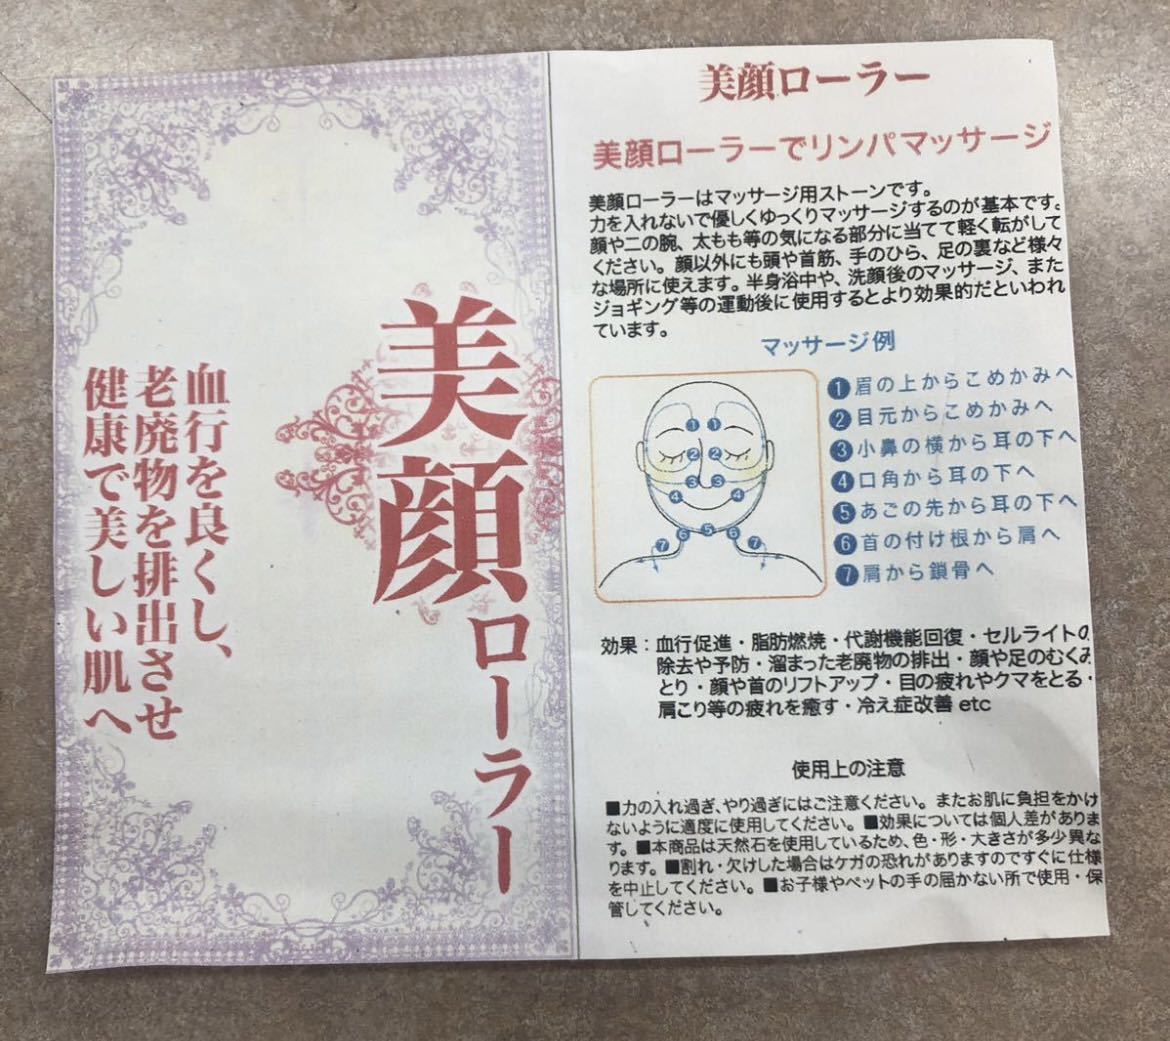 美顔ローラー
血行を良くし、
老廃物を排出させ
健康で美しい肌へ
美顔ローラー
美顔ローラーでリンパマッサージ
美顔ローラーはマッサージ用ストーンです。
力を入れないで優しくゆっくりマッサージするのが基本です。
顔や二の腕、太もも等の気になる部分に当てて軽く転がして
ください。顔以外にも頭や首筋、手のひら、足の裏など様々
な場所に使えます。半身浴中や、洗顔後のマッサージ、また
ジョギング等の運動後に使用するとより効果的だといわれ
ています。
マッサージ例
1 眉の上からこめかみへ
2 目元からこめかみへ
3 小鼻の横から耳の下へ
4 口角から耳の下へ
5 あごの先から耳の下へ
6 首の付け根から肩へ
7 肩から鎖骨へ
1 1
2 2
3 3
4 4
5
6 6
7 7
効果：血行促進・脂肪燃焼・代謝機能回復・セルライトの
除去や予防・溜まった老廃物の排出・顔や足のむくみ
とり・顔や首のリフトアップ・目の疲れやクマをとる・
肩こり等の疲れを癒す・冷え症改善 etc
使用上の注意
■力の入れ過ぎ、やり過ぎにはご注意ください。またお肌に負担をかけ
ないように適度に使用してください。■効果については個人差がありま
す。■本商品は天然石を使用しているため、色・形・大きさが多少異な
ります。■割れ・欠けした場合はケガの恐れがありますのですぐに仕様
を中止してください。■お子様やペットの手の届かない所で使用・保
管してください。